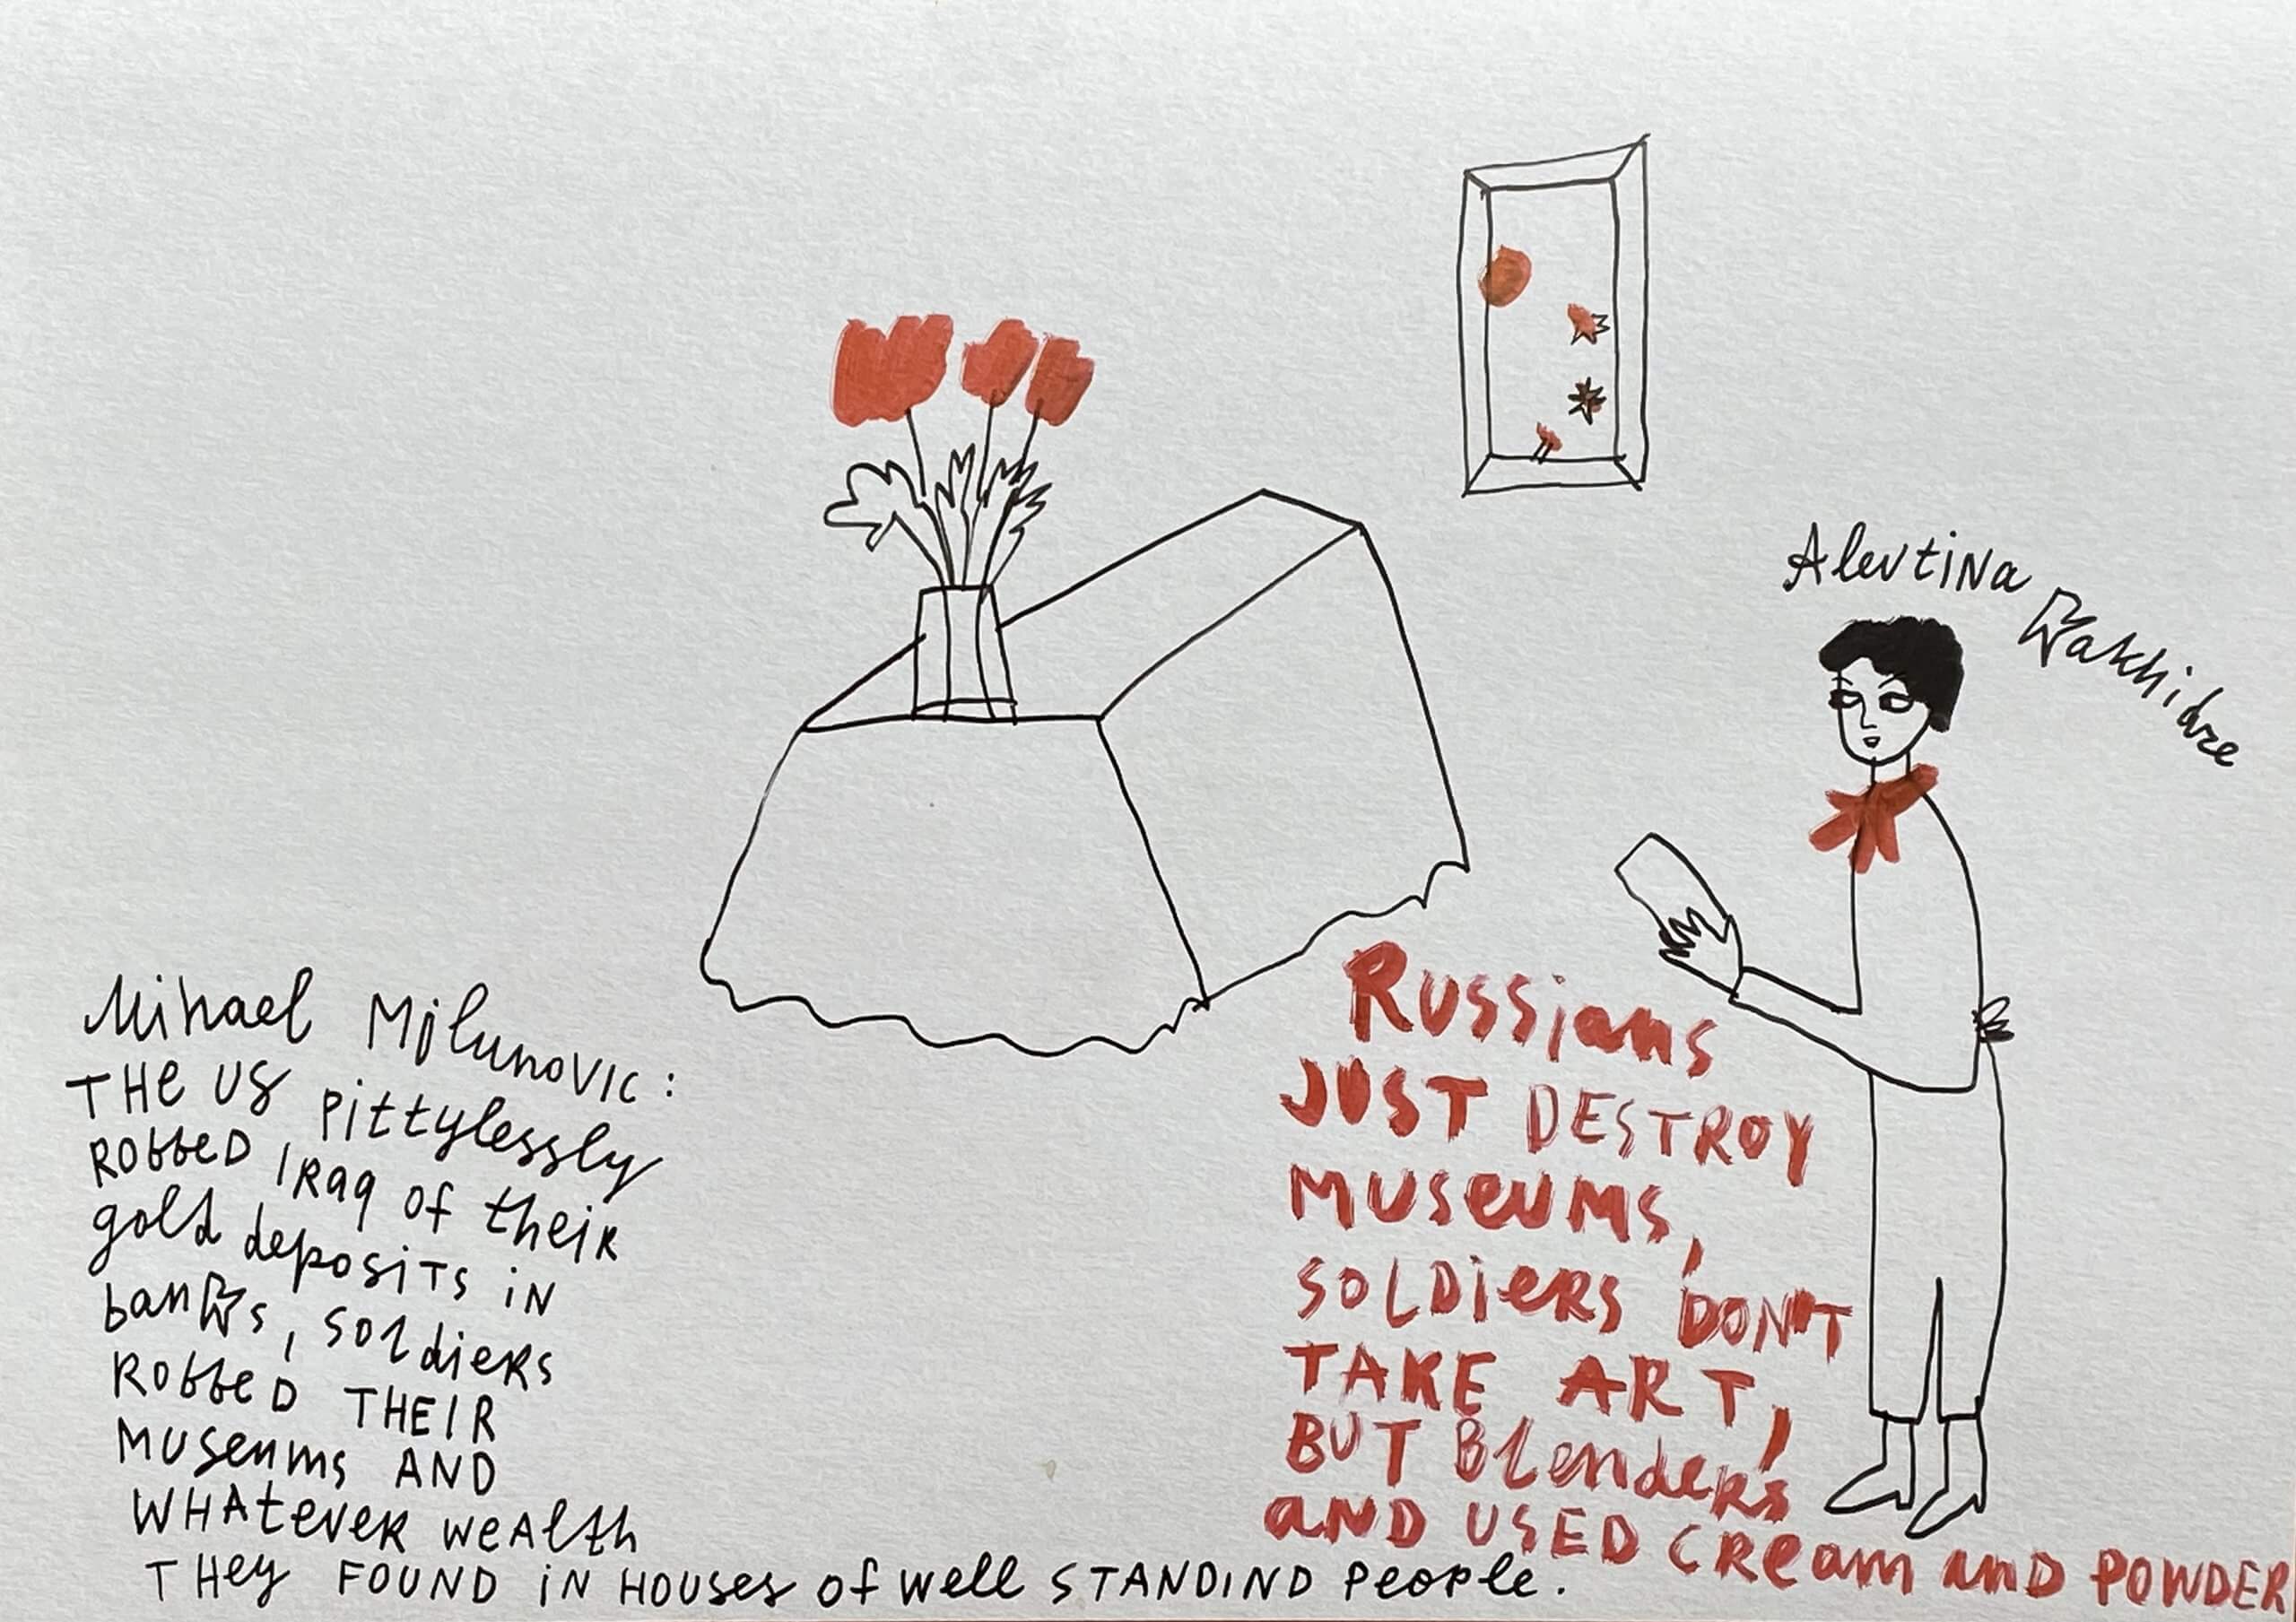 Alevtina
Kakhidze
Mihael Milunovic:
THE US pittylessly
ROBBED IRAQ of their
gold deposits in
banks, soldiers
ROBBED THEIR
Museums AND
WHAtever weAlth
THey FOUND iN HOUSes of well STANDIND People.
Russians
JUST DESTROY
MUSeUMS,
SOLDieRS DON'T
TAKE ART,
BUT Blenders
aND USED CReam anD POWDER